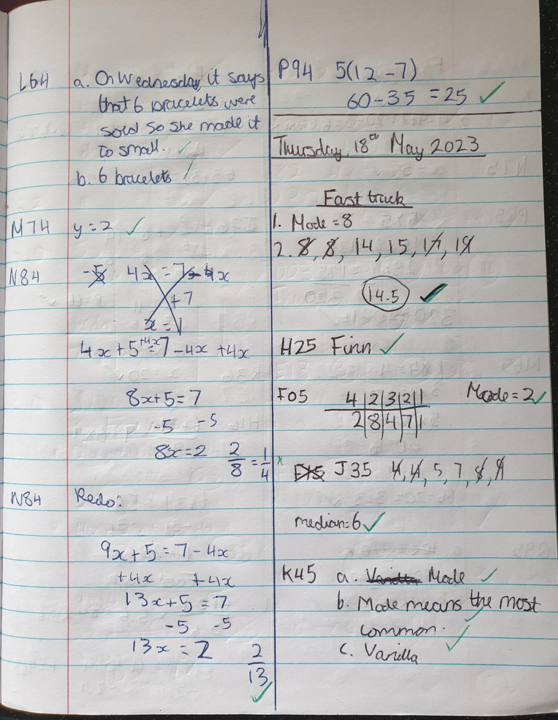 L64 a. On Wednesday it says
that 6 bracelets were
sold so she made it
to small.
b. 6 bracelets
M74 y=2
N84 -5 4x = 7 - 4x
+7
x = 1
4x + 5 +4x = 7 - 4x +4x
8x+5=7
-5 -5
8x=2 2/8 = 1/4
N84 Redo:
9x+5=7-4x
+4x +4x
13x+5=7
-5 -5
13x=2 2/13
P94 5(12-7)
60-35 =25
Thursday 18th May 2023
Fast track
1. Mode=8
2. 8, 8, 14, 15, 17, 19
14.5
H25 Finn
F05 4|2|3|2|1 Mode=2
2|8|4|7|1
J35 4, 4, 5, 7, 8, 9
median=6
K45 a. Vanilla Mode
b. Mode means the most
common.
c. Vanilla